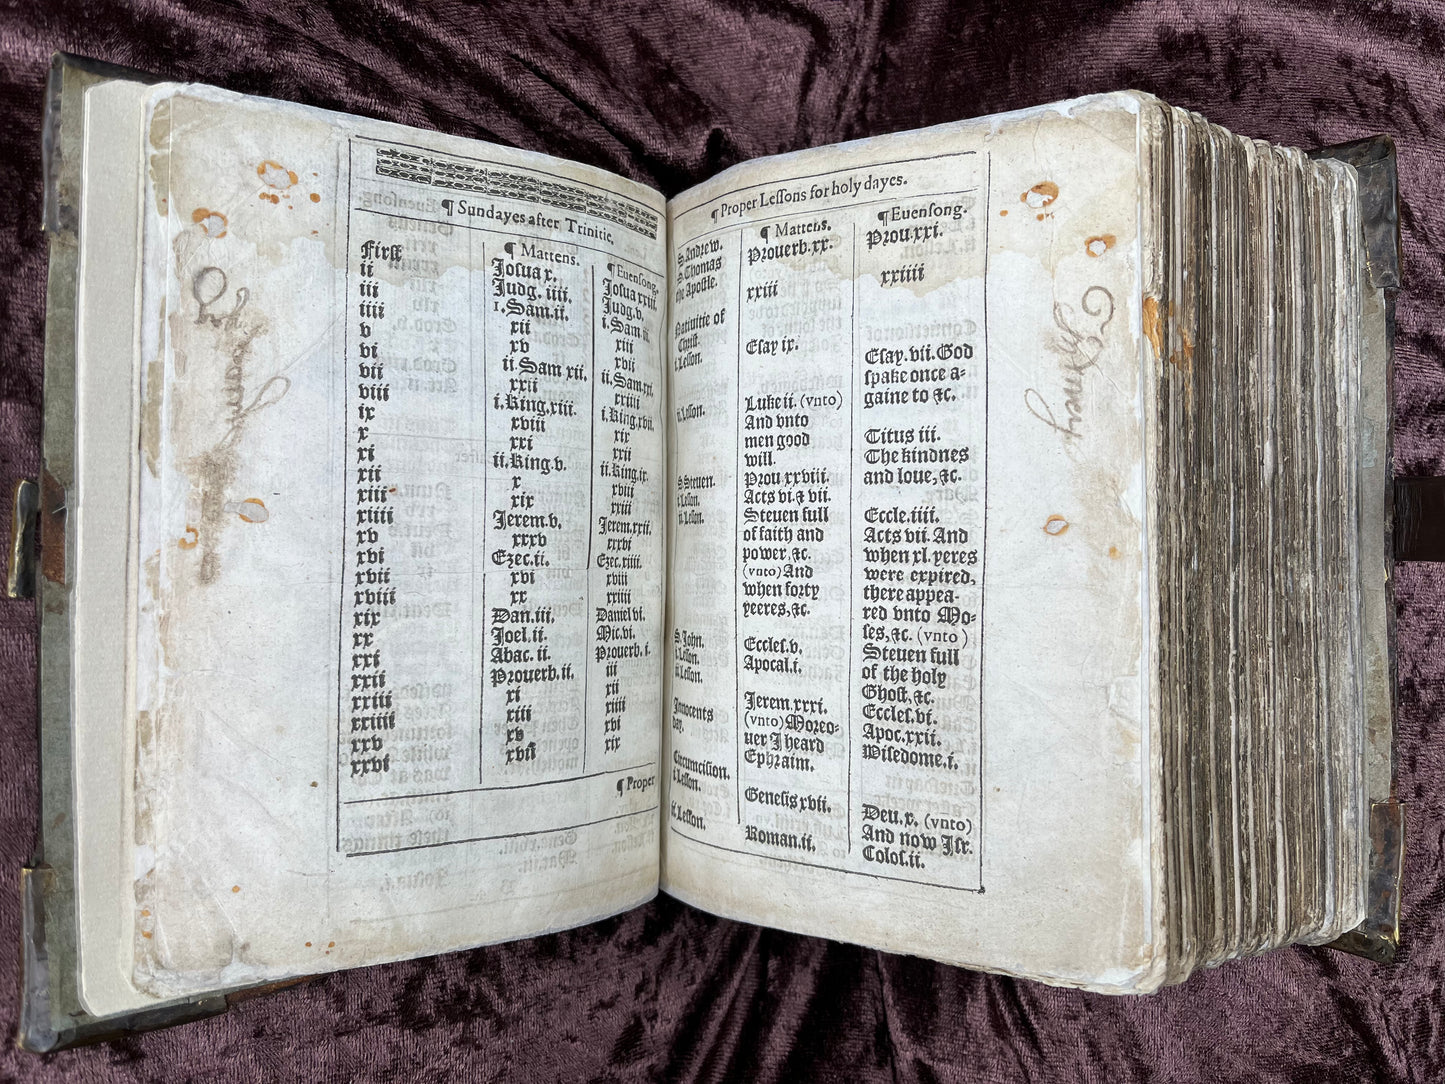 ¶ Sundayes after Trinitie.
¶ Mattens. ¶ Euensong.
First Iosua x. Iosua xxiii.
ii Judg. iiii. Judg. v.
iii 1. Sam. ii. i. Sam iii.
iiii xii xiii
v xv xvii
vi ii. Sam xii. ii. Sam. xxi.
vii xxii xxiiii
viii i. King. xiii. i. King. xvii.
ix xviii xix
x xxi xxii
xi ii. King. v. ii. King. ix.
xii x xviii
xiii xix xxiii
xiiii Jerem. v. Jerem. xxii.
xv xxxv xxxvi
xvi Ezec. ii. Ezec. xiiii.
xvii xvi xviii
xviii xx xxiiii
xix Dan. iii. Daniel vi.
xx Joel. ii. Mic. vi.
xxi Abac. ii. Prouerb. i.
xxii Prouerb. ii. iii
xxiii xi xii
xxiiii xiii xiiii
xxv xv xvi
xxvi xvii xix
¶ Proper
¶ Proper Lessons for holy dayes.
¶ Mattens. ¶ Euensong.
S. Andrew. Prouerb. xx. Prou. xxi.
S. Thomas
the apostle. xxiii xxiiii
Natiuitie of
Christ.
i. Lesson. Esay ix. Esay. vii. God
spake once a-
gaine to &c.
ii. Lesson. Luke ii. (vnto)
And vnto
men good Titus iii.
will. The kindnes
and loue, &c.
S Steuen. Prou xxviii.
i. Lesson. Acts vi. & vii. Eccle. iiii.
ii. Lesson. Steuen full Acts vii. And
of faith and when xl. yeres
power, &c. were expired,
(vnto) And there appea-
when forty red vnto Mo-
yeeres, &c. ses, &c. (vnto)
Steuen full
of the holy
Ghost, &c.
S. John.
i. Lesson. Eccles. v. Eccles. vi.
ii. Lesson. Apocal. i. Apoc. xxii.
Innocents Jerem. xxxi. Wisedome. i.
day. (vnto) Moreo-
uer I heard
Ephraim.
Circumcision.
i. Lesson. Genesis xvii. Deu. x. (vnto)
And now Isr.
ii. Lesson. Roman. ii. Colos. ii.